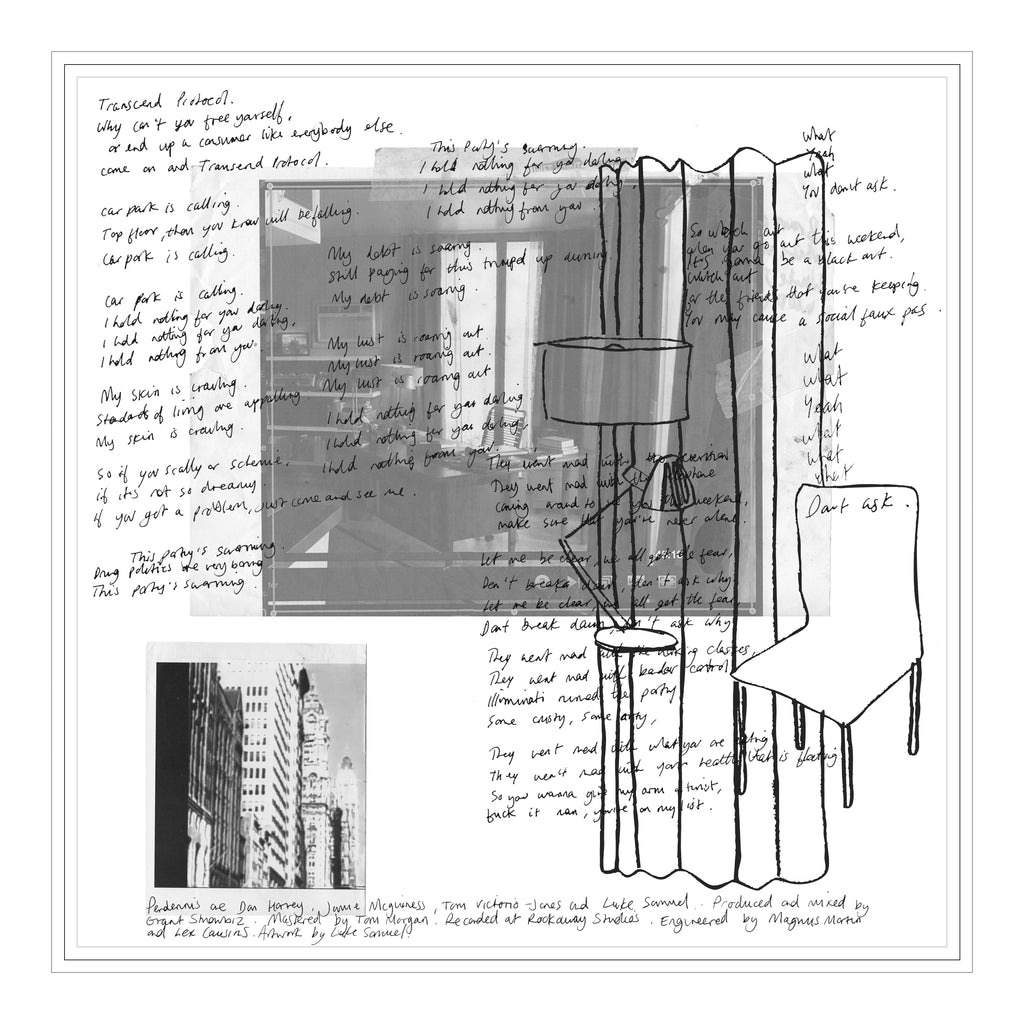 Transcend Protocol.
Why can't you free yourself,
or end up a consumer like everybody else.
come on and Transcend Protocol.
car park is calling.
Top floor, then you know will be falling.
Car park is calling.
Car park is calling.
I hold nothing for you darling.
I hold nothing for you darling,
I hold nothing from you.
My skin is crawling.
Standards of living are appalling
My skin is crawling.
So if you scally or scheme,
if it's not so dreamy.
if you got a problem, just come and see me.
This party's swarming.
Drug politics are very boring
This party's swarming.
This Party's swarming.
I hold nothing for you darling
I hold nothing for your darling,
I hold nothing from you.
My debt is soaring.
still paying for this trumped up
My debt is soaring.
My lust is roaring out
My lust is roaring out.
My lust is roaring out
I hold nothing for you darling
I hold nothing for you darling,
I hold nothing from you.
They went mad with the
They went mad with the
coming around to you weekend,
make sure that you're never alone.
Let me be clear, we all got the fear,
Don't break down, don't ask why.
Let me be clear we all got the fear,
Dont break down, don't ask why
They went mad with the classes,
They went mad with control
Illuminati ruined the party
Some crusty, some arty,
They went mad with what you are eating
They went mad with your health that is floating
So you wanna give my arm a twist,
fuck it man, you're on my list.
What
Yeah
what
You dont ask.
So watch out
when you go out this weekend,
It's gonna be a black out.
Watch out
for the friends that you're keeping.
You may cause a social faux pas.
What
What
Yeah
what
what
what
Dont ask.
Pendennis are Dan Harvey, Jamie McGuiness, Tom Victoria-Jones and Luke Samuel. Produced and mixed by
Grant Showbiz. Mastered by Tom Morgan. Recorded at Rockaway Studios. Engineered by Magnus Martin
and Lex Cousins. Artwork by Luke Samuel.